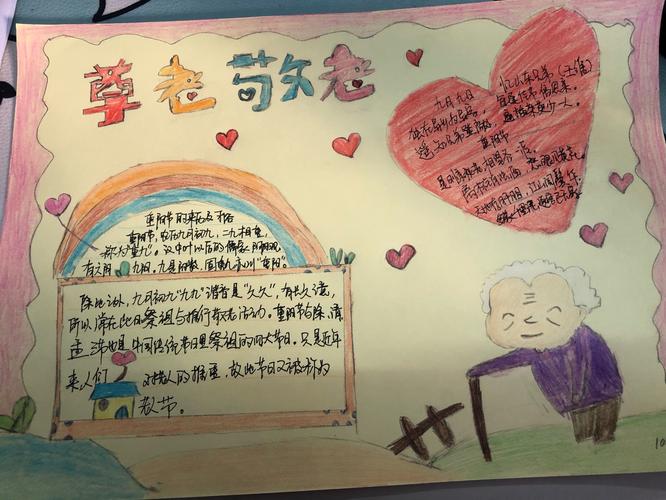 尊老敬老
忆山东兄弟（王维）
九月九日
独在异乡为异客，每逢佳节倍思亲。
遥知兄弟登高处，遍插茱萸少一人。
重阳节
重阳节的来历及习俗
重阳节，农历九月初九，二九相重，
称为"重九"。汉中叶以后的儒家阴阳观，
有六阴九阳。九是阳数，固重九亦叫"重阳"
除此之外，九月初九"九九"谐音是"久久"，有长久之意，
所以常在此日祭祖与推行敬老活动。重阳节与除、清
盂三节也是中国传统节日里祭祖的四大节日。只是近年
来人们 对老人的推重，故此节日又被称为
老人节。
10